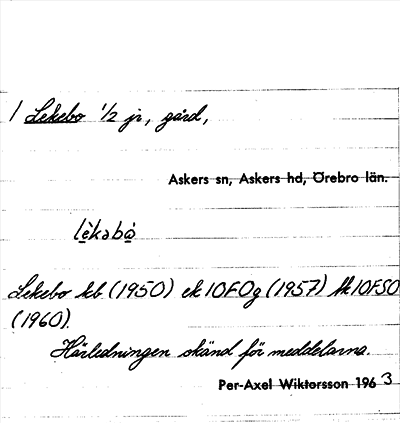 1 Lekebo 1/2 jr, gård,
Askers sn, Askers hd, Örebro län.
lèkəbò
Lekebo kb (1950) ek 10FOg (1957) tk 10FSO
(1960).
Härledningen okänd för meddelarna.
Per-Axel Wiktorsson 1963